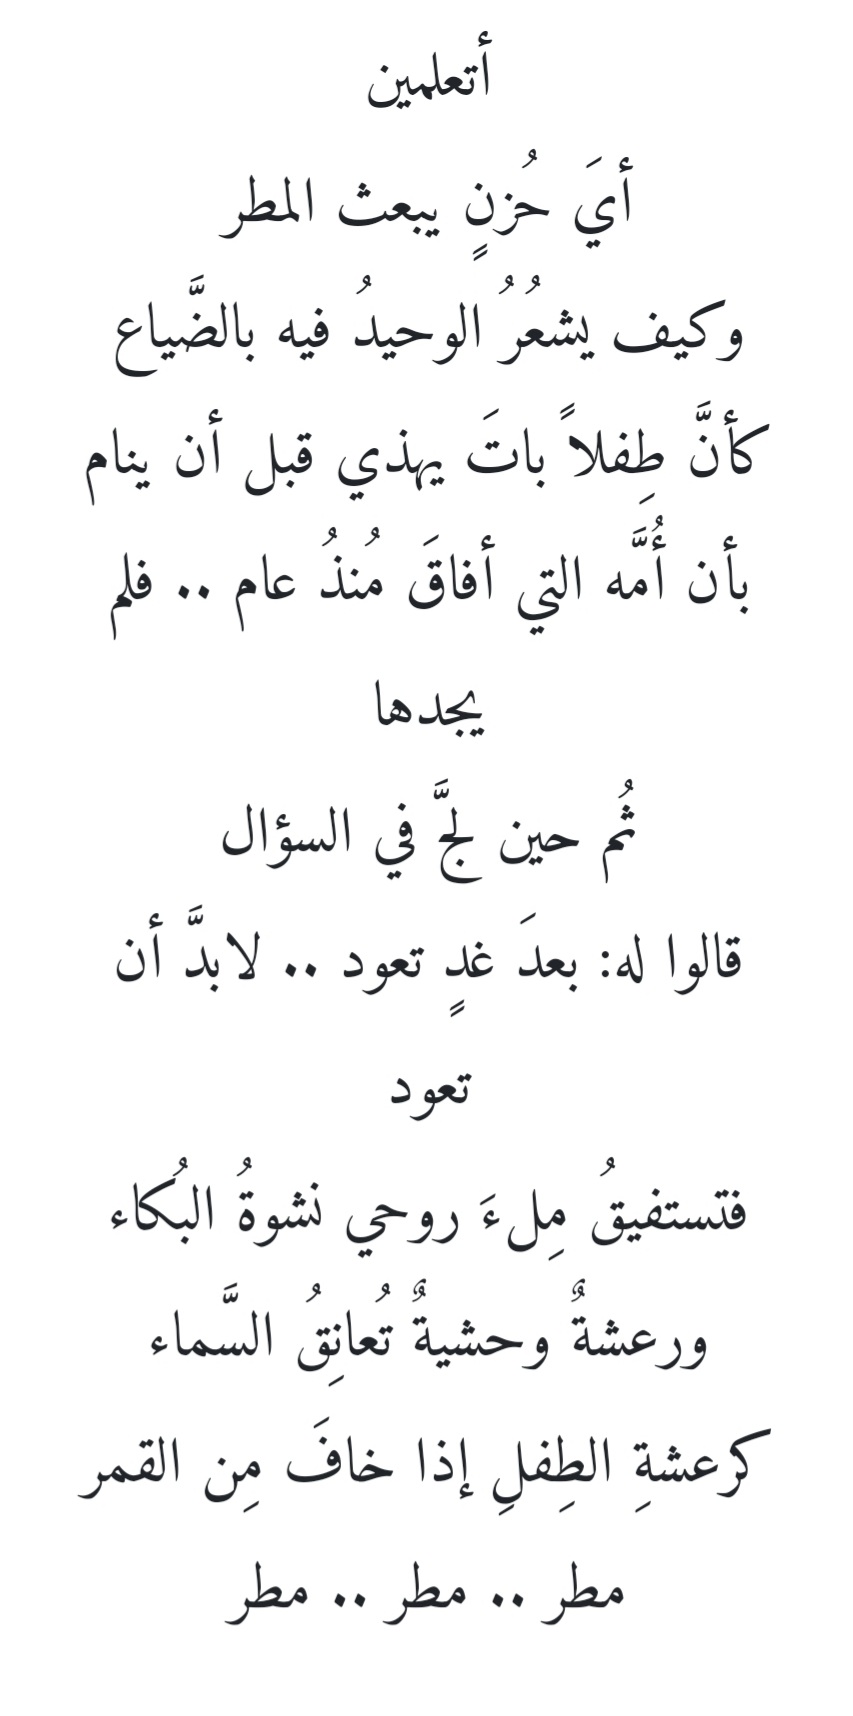 أتعلمين
أيَ حُزنٍ يبعث المطر
وكيف يشعُرُ الوحيدُ فيه بالضَّياع
كأنَّ طِفلاً باتَ يهذي قبل أن ينام
بأن أُمَّه التي أفاقَ مُنذُ عام .. فلم
يجدها
ثُم حين لجَّ في السؤال
قالوا له: بعدَ غدٍ تعود .. لابدَّ أن
تعود
فتستفيقُ مِلءَ روحي نشوةُ البُكاء
ورعشةٌ وحشيةٌ تُعانِقُ السَّماء
كرعشةِ الطِفلِ إذا خافَ مِن القمر
مطر .. مطر .. مطر